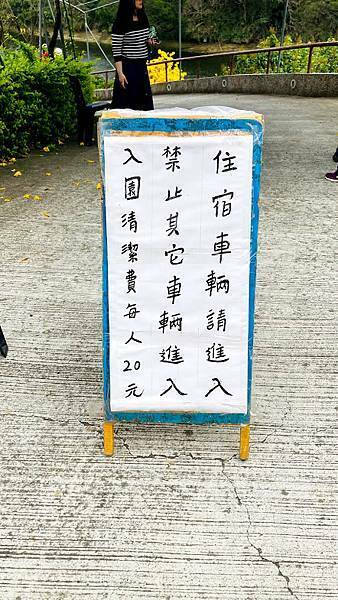 住宿車輛請進入
禁止其它車輛進入
入園清潔費每人20元